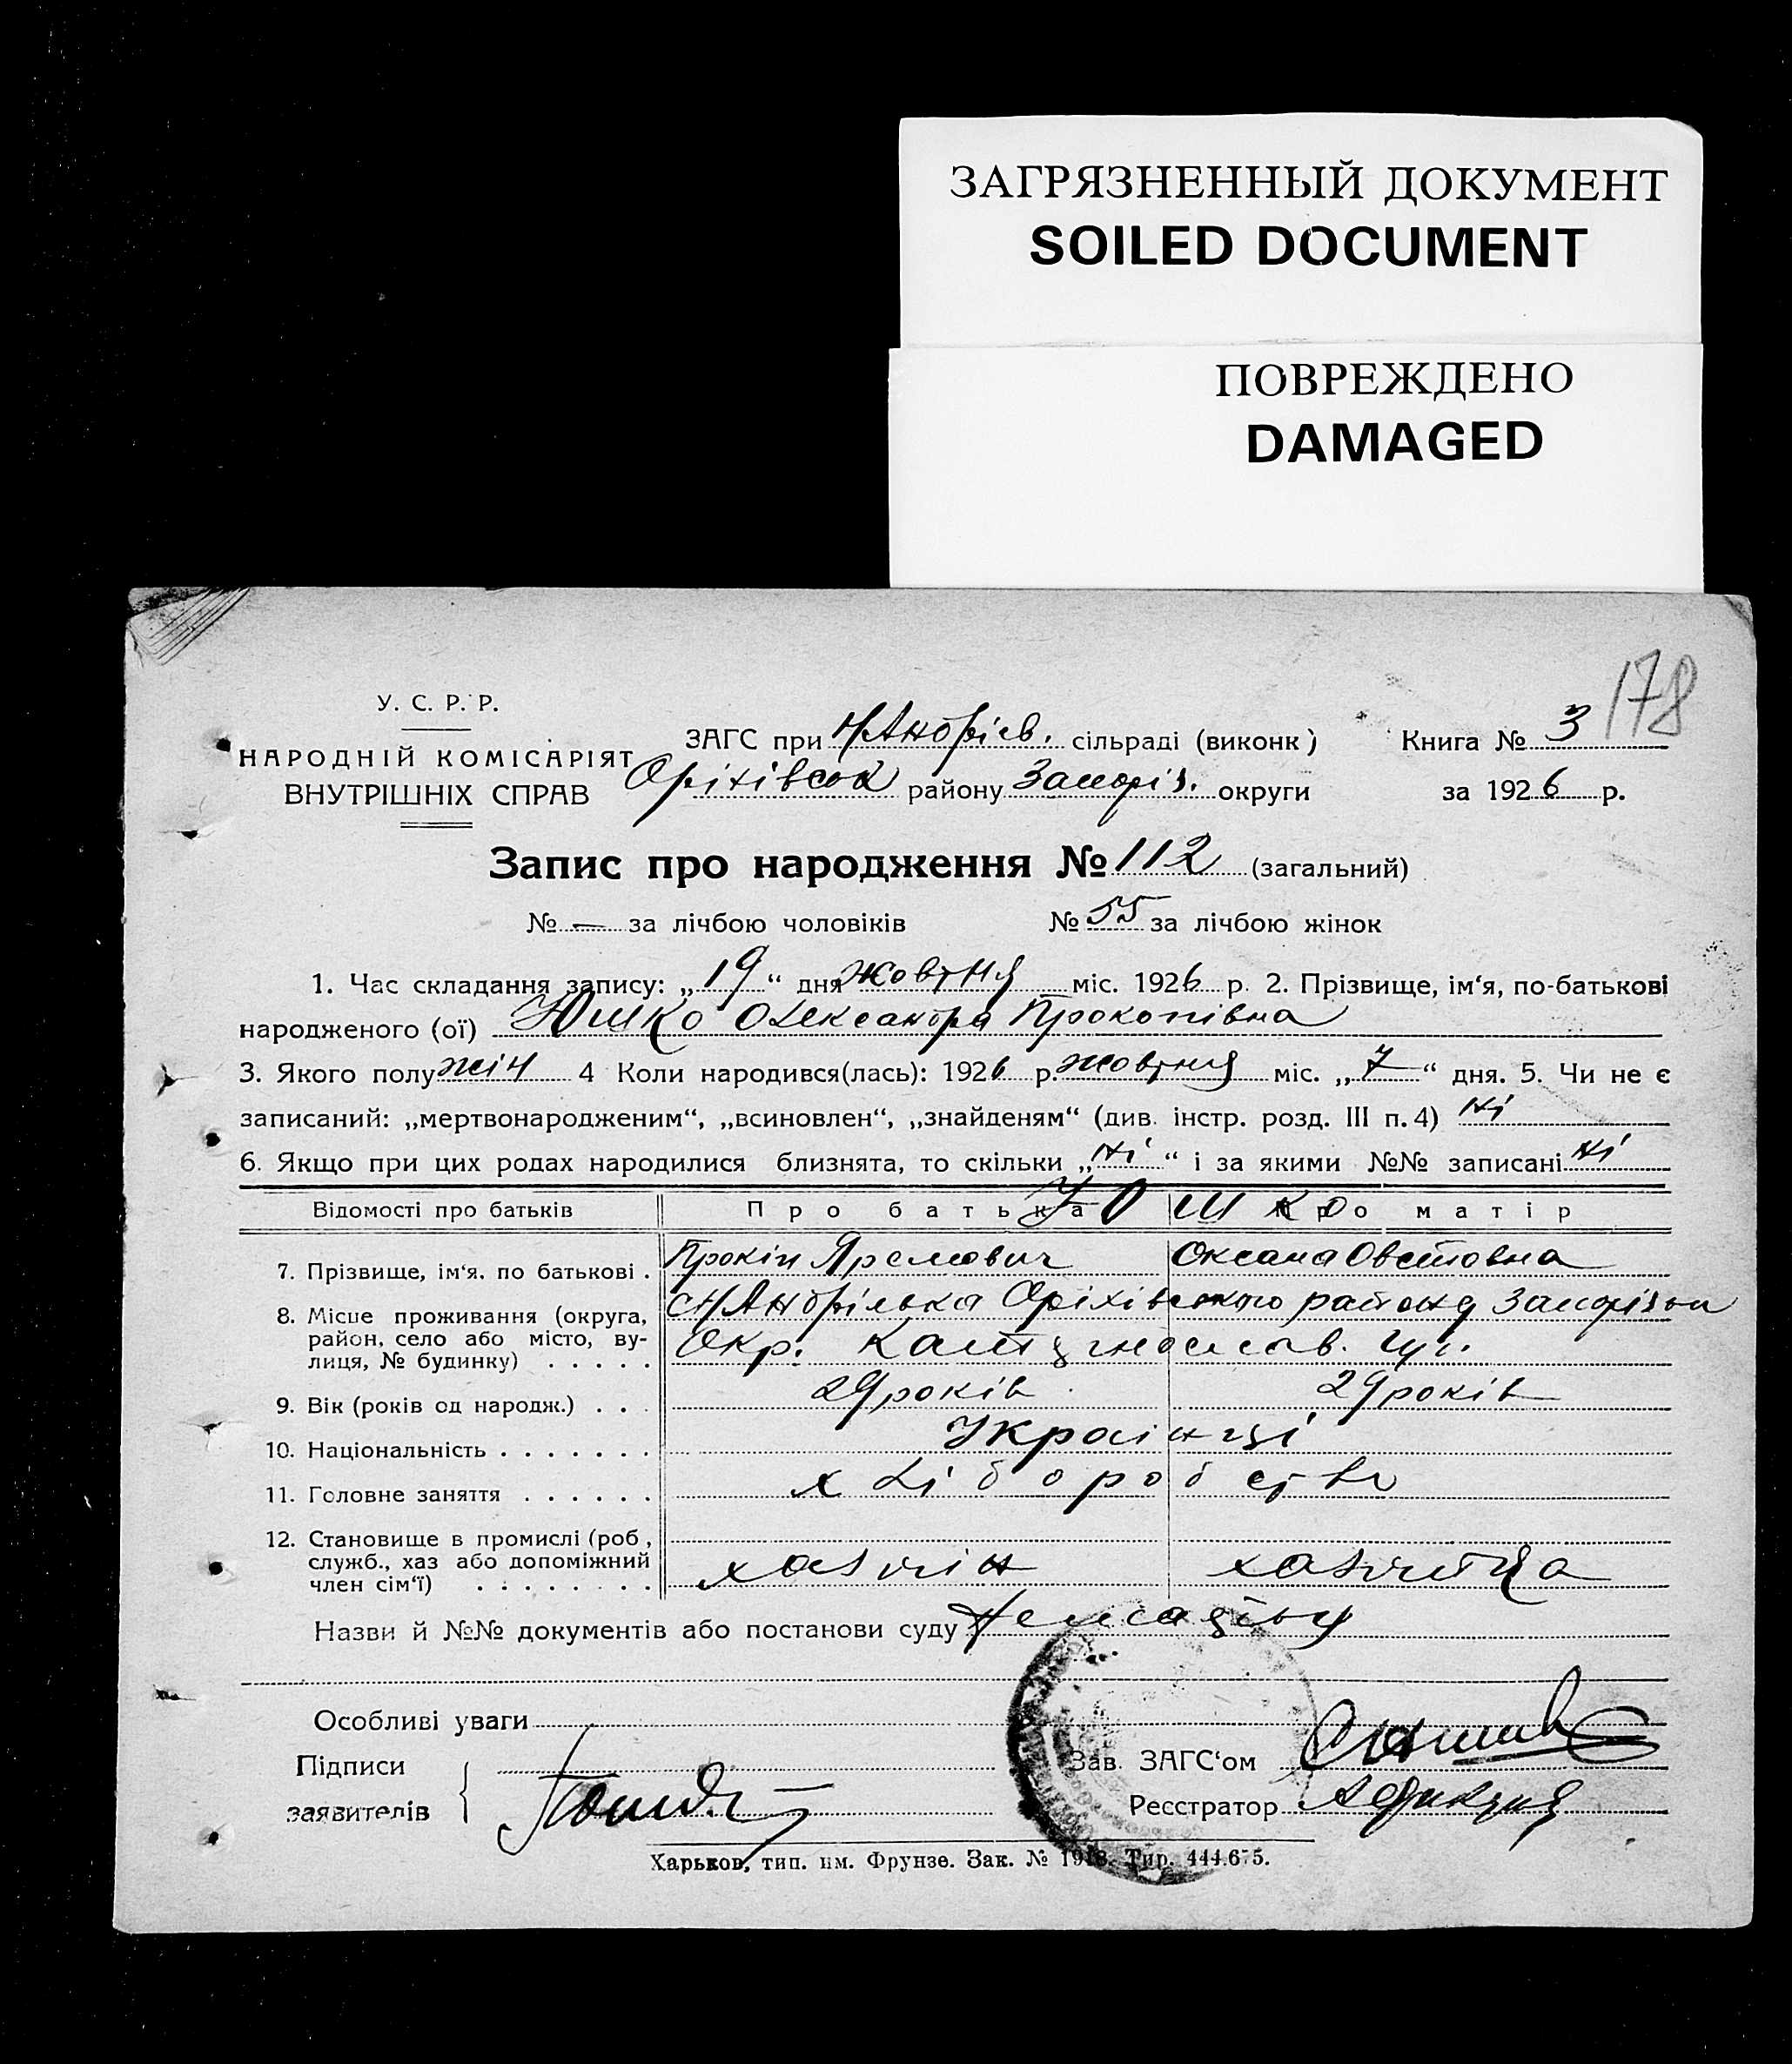 ЗАГРЯЗНЕННЫЙ ДОКУМЕНТ
SOILED DOCUMENT
ПОВРЕЖДЕНО
DAMAGED
178
У. С. Р. Р.
НАРОДНІЙ КОМІСАРІЯТ
ВНУТРІШНІХ СПРАВ
ЗАГС при Н/Андріів. сільраді (виконк)
Книга № 3
Оріхівськ району Запоріз. округи
за 1926 р.
Запис про народження № 112 (загальний)
№ — за лічбою чоловіків № 55 за лічбою жінок
1. Час складання запису: „19“ дня жовтня міс. 1926 р. 2. Прізвище, ім‘я, по-батькові
народженого (ої) Юшко Олександра Прокопівна
3. Якого полу жін 4 Коли народився(лась): 1926 р. жовтня міс. „7“ дня. 5. Чи не є
записаний: „мертвонародженим“, „всиновлен“, „знайденям“ (див. інстр. розд. III п. 4) ні
6. Якщо при цих родах народилися близнята, то скільки „ні“ і за якими №№ записані ні
Відомості про батьків Про батька Про матір
Юшко
7. Прізвище, ім‘я. по батькові . Прокіп Яремович Оксана Овстовна
8. Місце проживання (округа,
район, село або місто, ву-
лиця, № будинку) . . . . .
с Н/Андрівка Оріхівського району Запорізьк
Окр.
9. Вік (років од народж.) . . . 29 років 29 років
10. Національність . . . . . . . Украінці
11. Головне заняття . . . . . . хліборобство
12. Становище в промислі (роб,
служб., хаз або допоміжний
член сім‘ї) . . . . . . . .
хазяін хазяйка
Назви й №№ документів або постанови суду
Особливі уваги
Підписи
заявителів
Зав. ЗАГС‘ом
Реєстратор
Харьков, тип. им. Фрунзе. Зак. № 1918. Тир. 444.675.